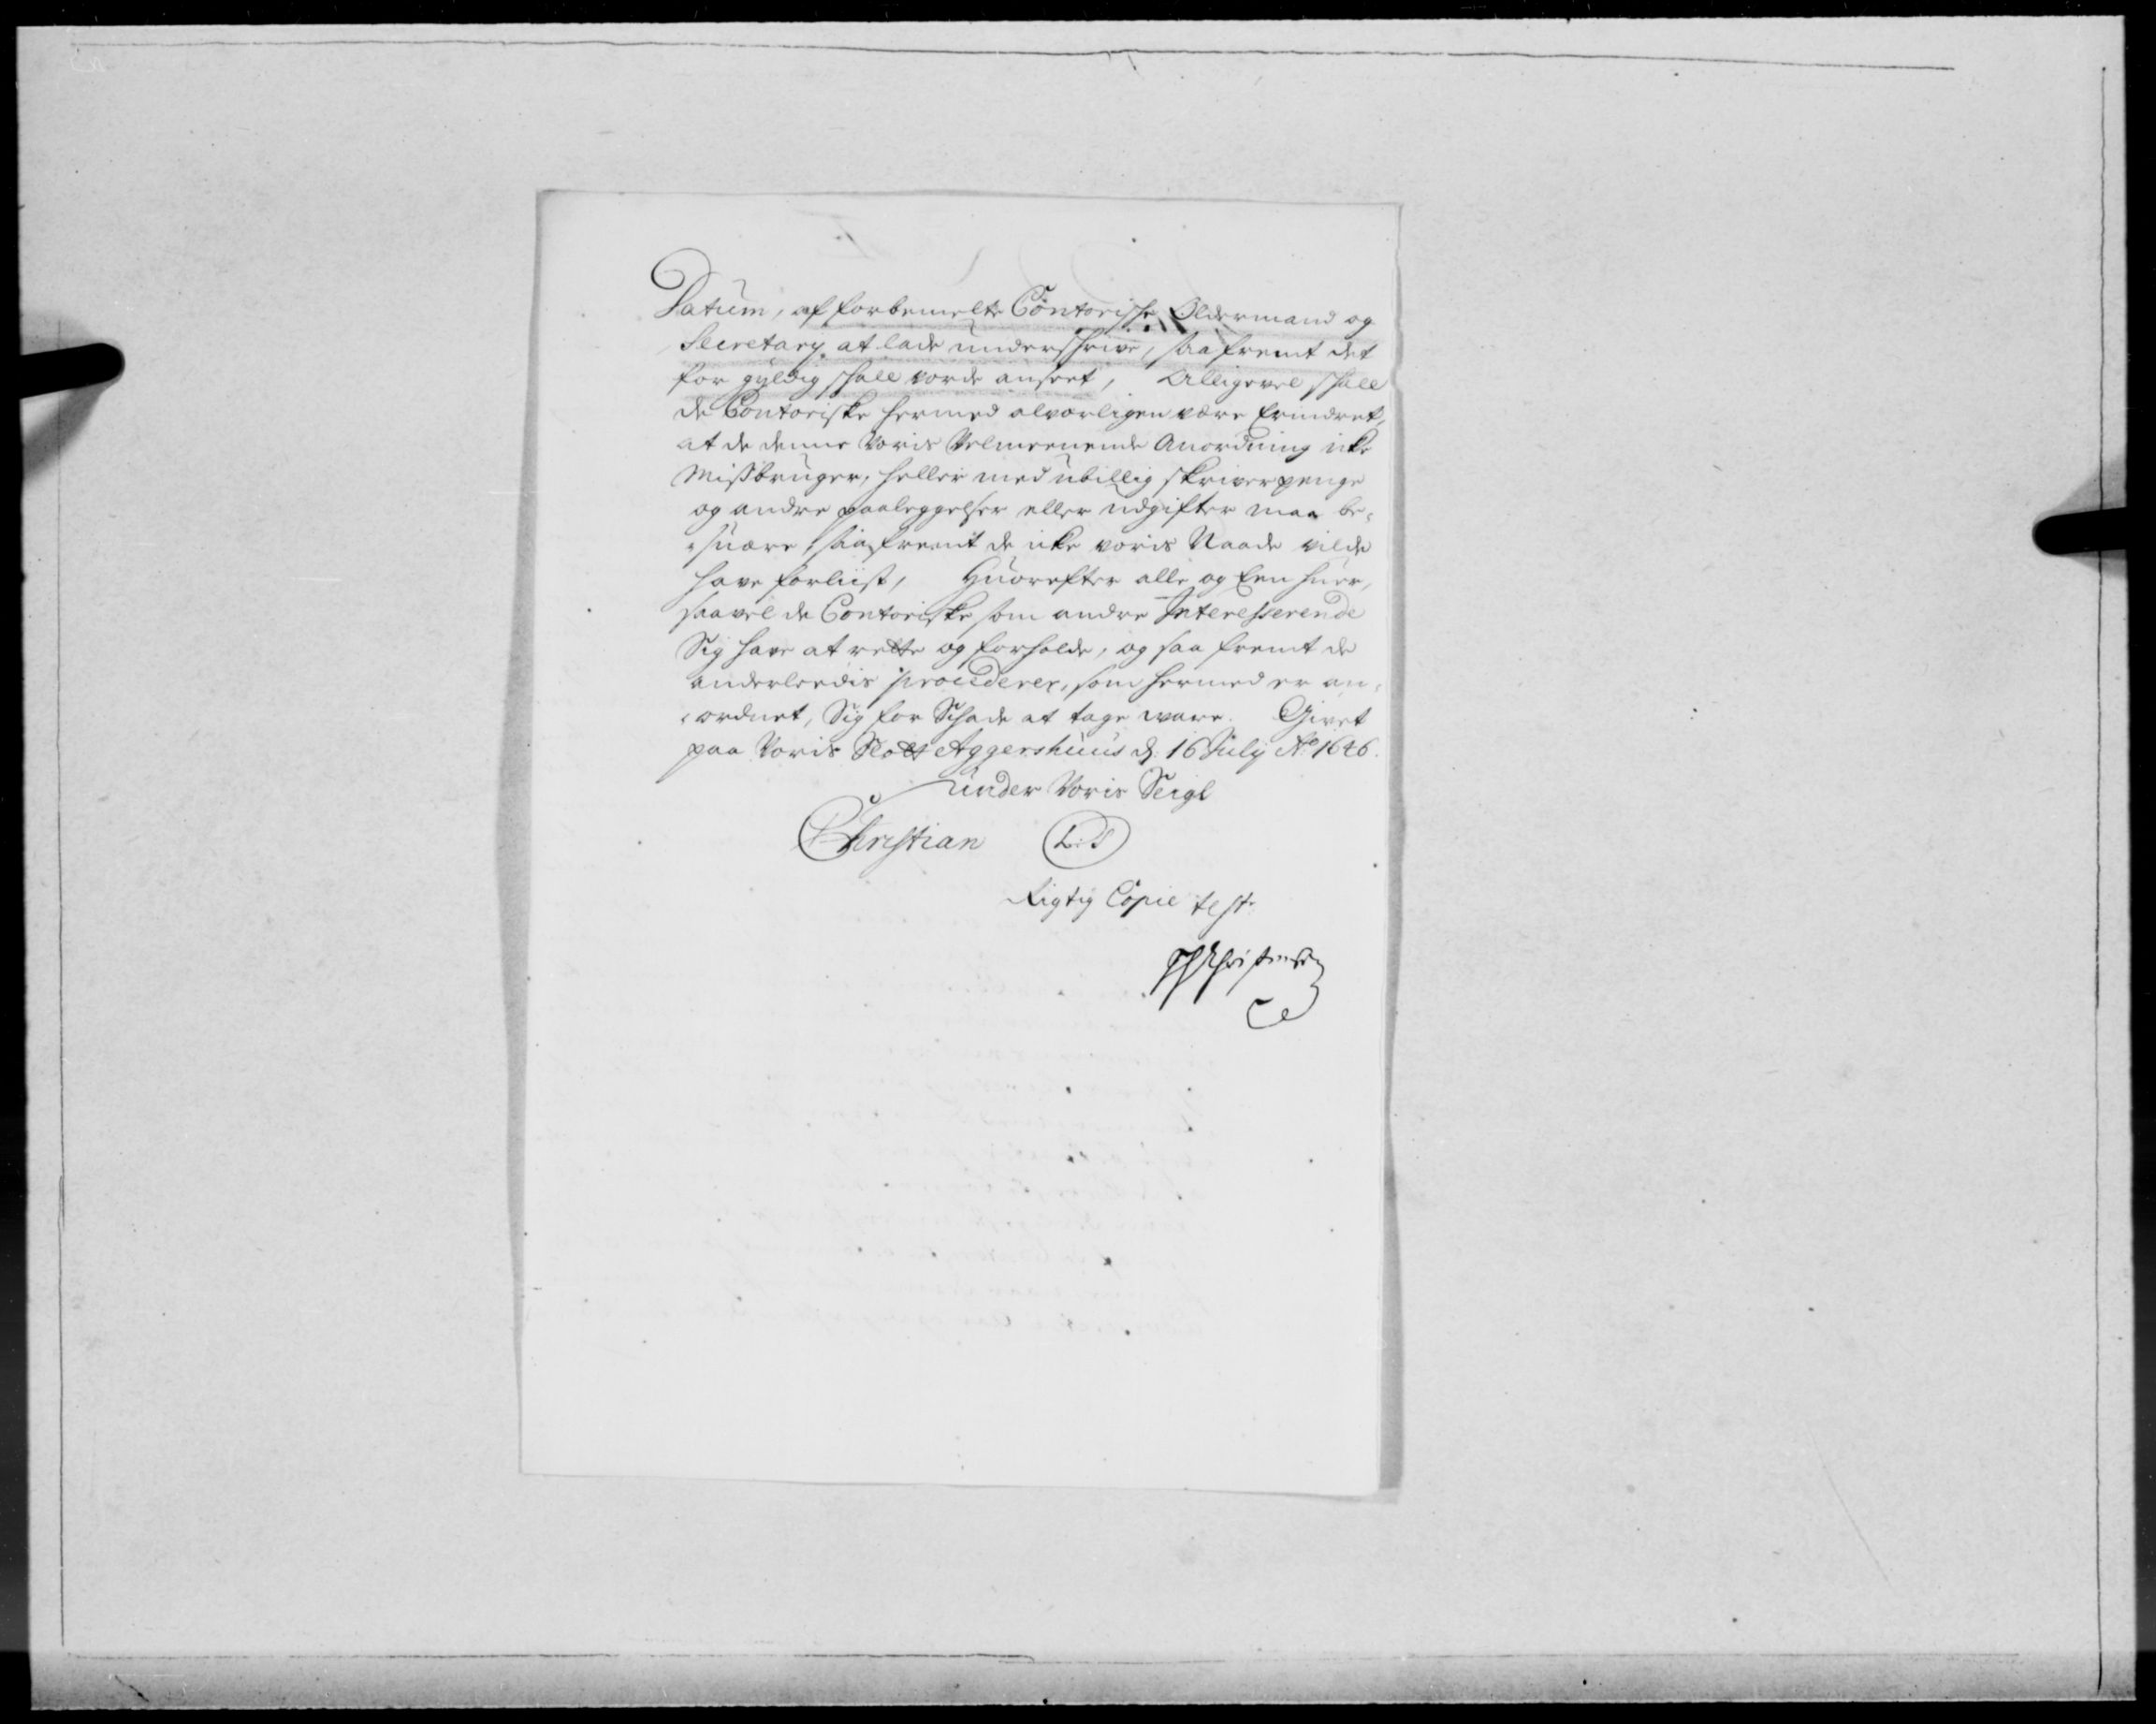 Datum, af forbemelte Contorische Oldermand og
Secretary at lade underschrive, saafremt det
for gyldig schall worde anseet, Alligevel schall
de Contoriske hermed alvorligen være Erindret,
at de denne Voris Velmeenende Anordning icke
Missbruger, heller med ubillig skriverpenge
og andre paaleggelser eller udgifter maa be-
suære, saafremt de icke voris Naade vilde
have forliist, Huorefter alle og Een huer,
saavel de Contoriske som andre Interesserende
Sig have at rette og forholde, og saa fremt de
anderleedis procederer, som hermed er an-
ordnet, Sig for Schade at tage ware. Givet
paa Voris Slott Aggershuus d. 16 July Ao 1646.
under Voris Seigl
Christian L.S
Rigtig Copie test.